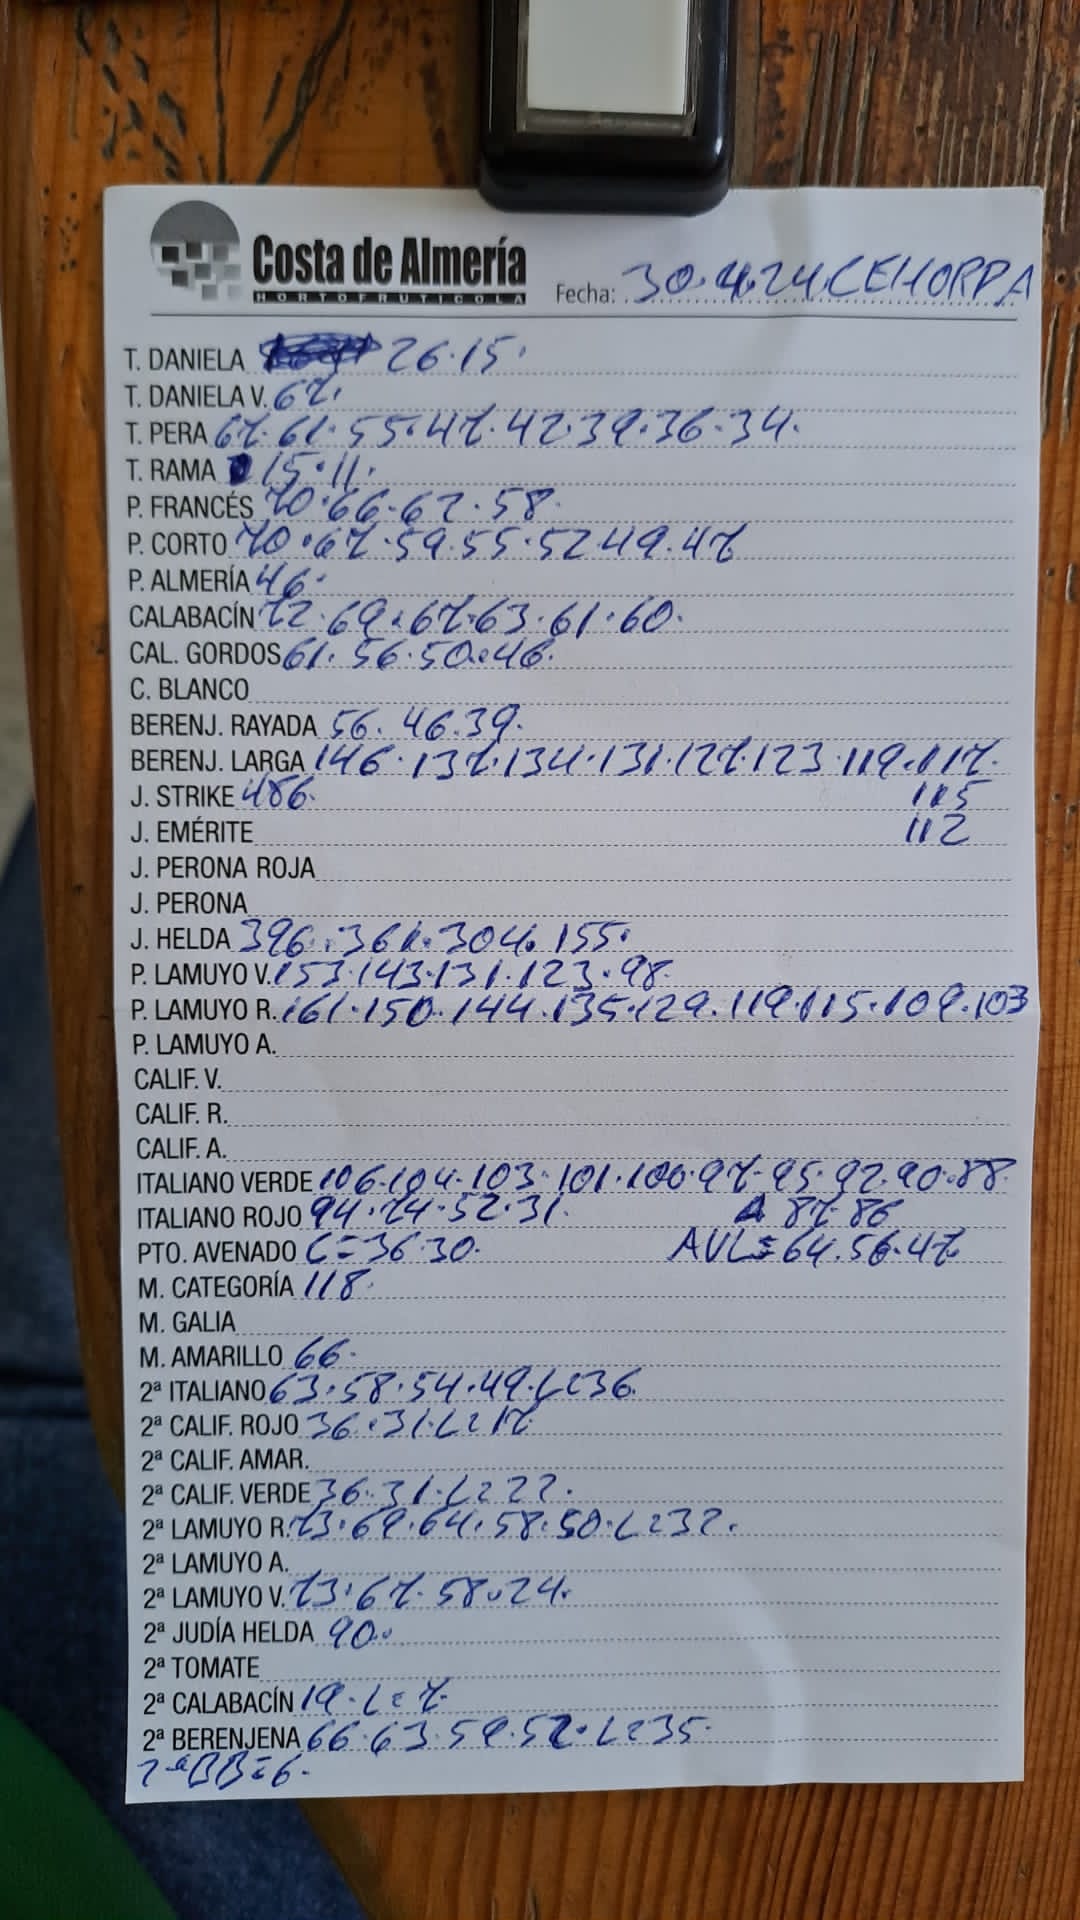 Costa de Almería
HORTOFRUTICOLA
Fecha: 30.4.24.CEHORPA
T. DANIELA 26.15.
T. DANIELA V. 67.
T. PERA 67.61.55.47.42.39.36.34.
T. RAMA 15.11.
P. FRANCÉS 70.66.62.58.
P. CORTO 70.67.59.55.52.49.47
P. ALMERÍA 46.
CALABACÍN 72.69.67.63.61.60.
CAL. GORDOS 61.56.50.46.
C. BLANCO
BERENJ. RAYADA 56.46.39.
BERENJ. LARGA 146.137.134.131.127.123.119.117.
J. STRIKE 486. 115
J. EMÉRITE 112
J. PERONA ROJA
J. PERONA
J. HELDA 396.361.304.155.
P. LAMUYO V. 153.143.131.123.98.
P. LAMUYO R. 161.150.144.135.129.119.115.109.103
P. LAMUYO A.
CALIF. V.
CALIF. R.
CALIF. A.
ITALIANO VERDE 106.104.103.101.100.97.95.92.90.88.
ITALIANO ROJO 94.74.52.31. 87.86
PTO. AVENADO C=36.30. AVL=64.56.47
M. CATEGORÍA 118.
M. GALIA
M. AMARILLO 66.
2ª ITALIANO 63.58.54.49.L=36.
2ª CALIF. ROJO 36.31.L=17
2ª CALIF. AMAR.
2ª CALIF. VERDE 36.31.L=22.
2ª LAMUYO R. 73.69.64.58.50.L=32.
2ª LAMUYO A.
2ª LAMUYO V. 73.67.58.24.
2ª JUDÍA HELDA 90.
2ª TOMATE
2ª CALABACÍN 19.L=7.
2ª BERENJENA 66.63.59.52.L=35.
2ªBB=6.